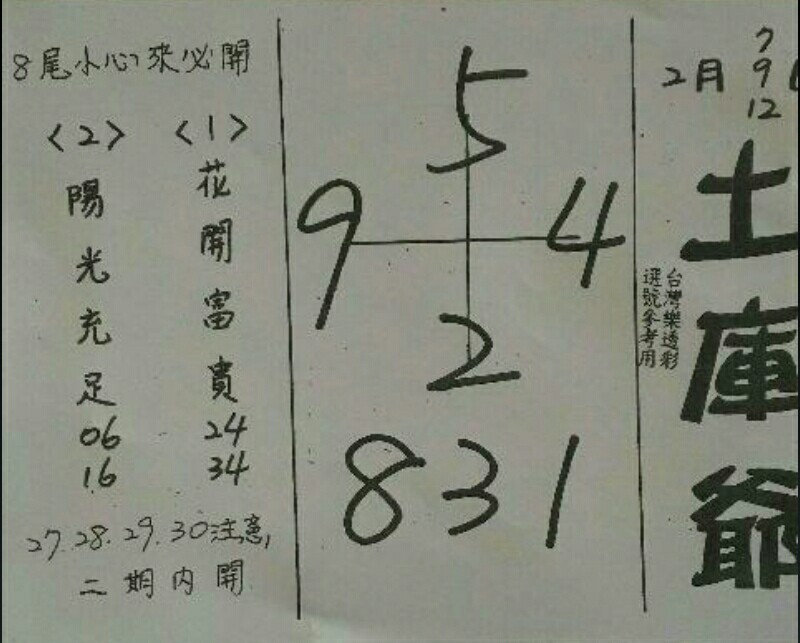 2月
7
9
12
土庫爺
台灣樂透彩
選號參考用
5
9 4
2
831
8尾小心、來必開
<1>
花開富貴
24
34
<2>
陽光充足
06
16
27.28.29.30注意,
二期內開